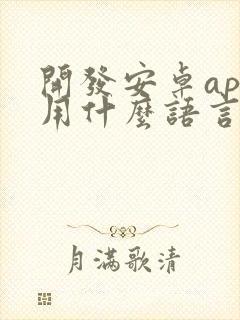 開發安卓ap
用什麼語言
月滿歌清